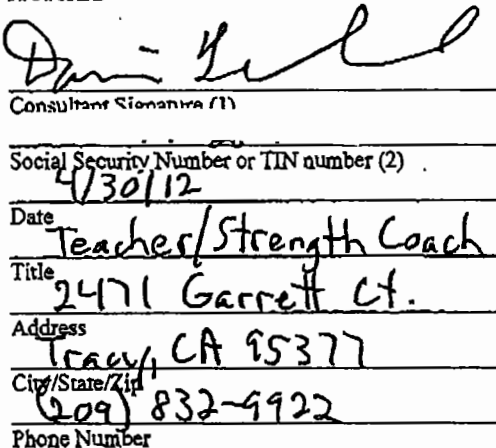 Consultant Signature (1)
Social Security Number or TIN number (2)
4/30/12
Date
Teacher/Strength Coach
Title
2471 Garrett Ct.
Address
Tracy, CA 95377
City/State/Zip
(209) 832-9922
Phone Number